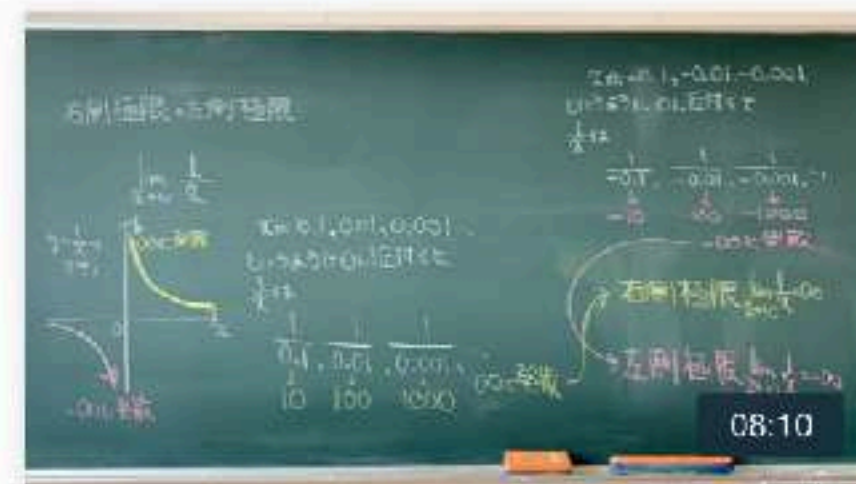 右側極限・左側極限
lim 1/x
∞に発散
0
-∞に発散
xが0.1, 0.01, 0.001
というように0に近付くと
1/xは
1/0.1, 1/0.01, 1/0.001,
10 100 1000
∞に発散
xが-0.1, -0.01, -0.001
というように0に近付くと
1/xは
1/-0.1, 1/-0.01, 1/-0.001,
-10 -100 -1000
-∞に発散
右側極限 lim 1/x=∞
左側極限 lim 1/x=-∞
08:10